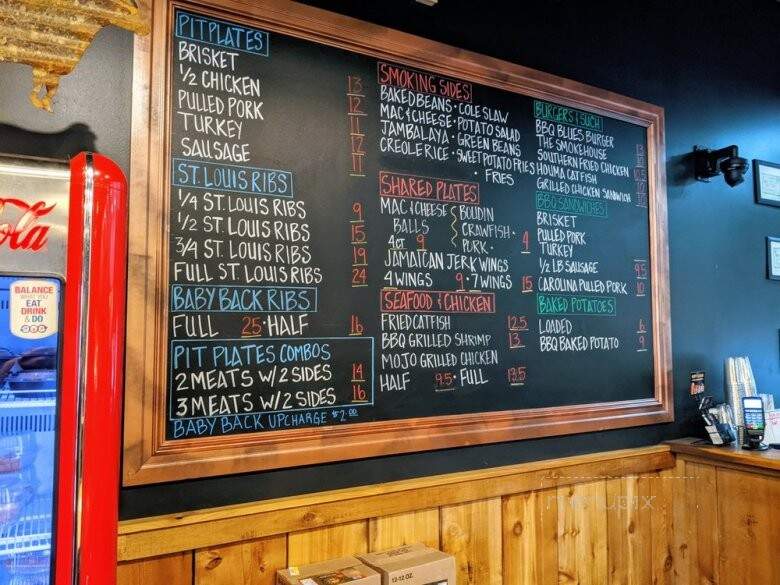 PIT PLATES
BRISKET
1/2 CHICKEN 13
PULLED PORK 12
TURKEY 11
SAUSAGE 12
11
ST. LOUIS RIBS
1/4 ST. LOUIS RIBS 9
1/2 ST. LOUIS RIBS 15
3/4 ST. LOUIS RIBS 19
FULL ST. LOUIS RIBS 24
BABY BACK RIBS
FULL 25 · HALF 16
PIT PLATES COMBOS
2 MEATS W/ 2 SIDES 14
3 MEATS W/ 2 SIDES 16
BABY BACK UPCHARGE $2.00
SMOKING SIDES
BAKED BEANS · COLE SLAW
MAC & CHEESE · POTATO SALAD
JAMBALAYA · GREEN BEANS
CREOLE RICE · SWEET POTATO FRIES
· FRIES
SHARED PLATES
MAC & CHEESE BOUDIN
BALLS CRAWFISH ·
4CT 9 PORK · 9
JAMAICAN JERK WINGS
4 WINGS 9 · 7 WINGS 15
SEAFOOD & CHICKEN
FRIED CATFISH 12.5
BBQ GRILLED SHRIMP 13
MOJO GRILLED CHICKEN
HALF 9.5 · FULL 13.5
BURGERS & SUCH
BBQ BLUES BURGER 13
THE SMOKEHOUSE
SOUTHERN FRIED CHICKEN
HOUMA CATFISH 10.5
GRILLED CHICKEN SANDWICH 10
BBQ SANDWICHES
BRISKET
PULLED PORK
TURKEY
1/2 LB SAUSAGE 9.5
CAROLINA PULLED PORK 10
BAKED POTATOES
LOADED 6
BBQ BAKED POTATO 9
BALANCE
WHAT YOU
EAT
DRINK
& DO
12-12 OZ
menupix